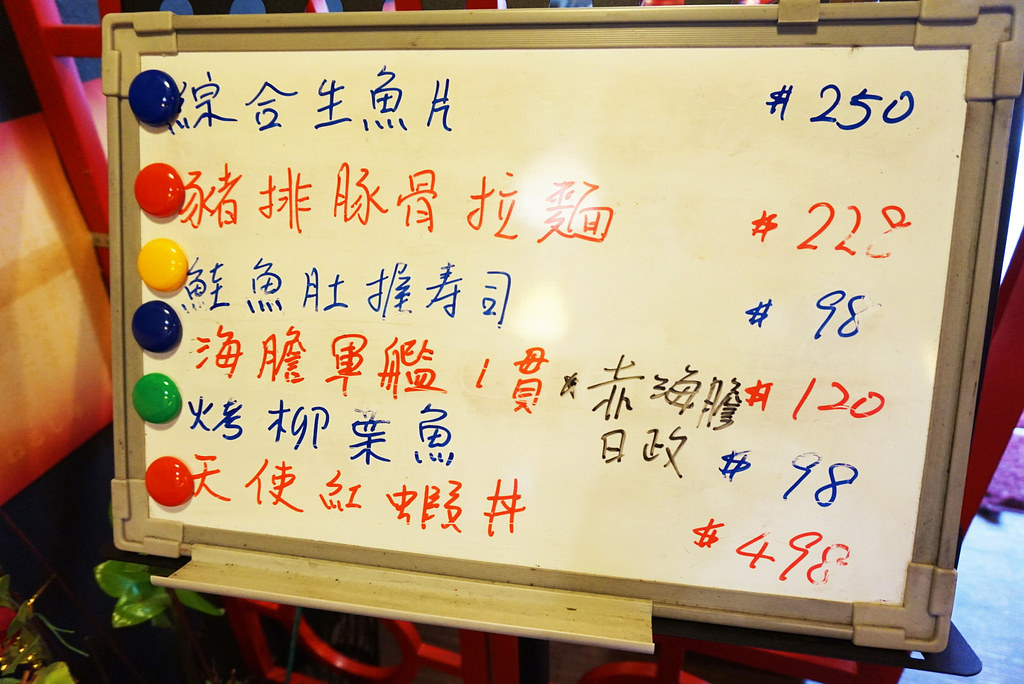 綜合生魚片 #250
豬排豚骨拉麵 #228
鮭魚肚握寿司 #98
海膽軍艦1貫 * 赤海膽 #120
日政
烤柳葉魚 #98
天使紅蝦丼 #498